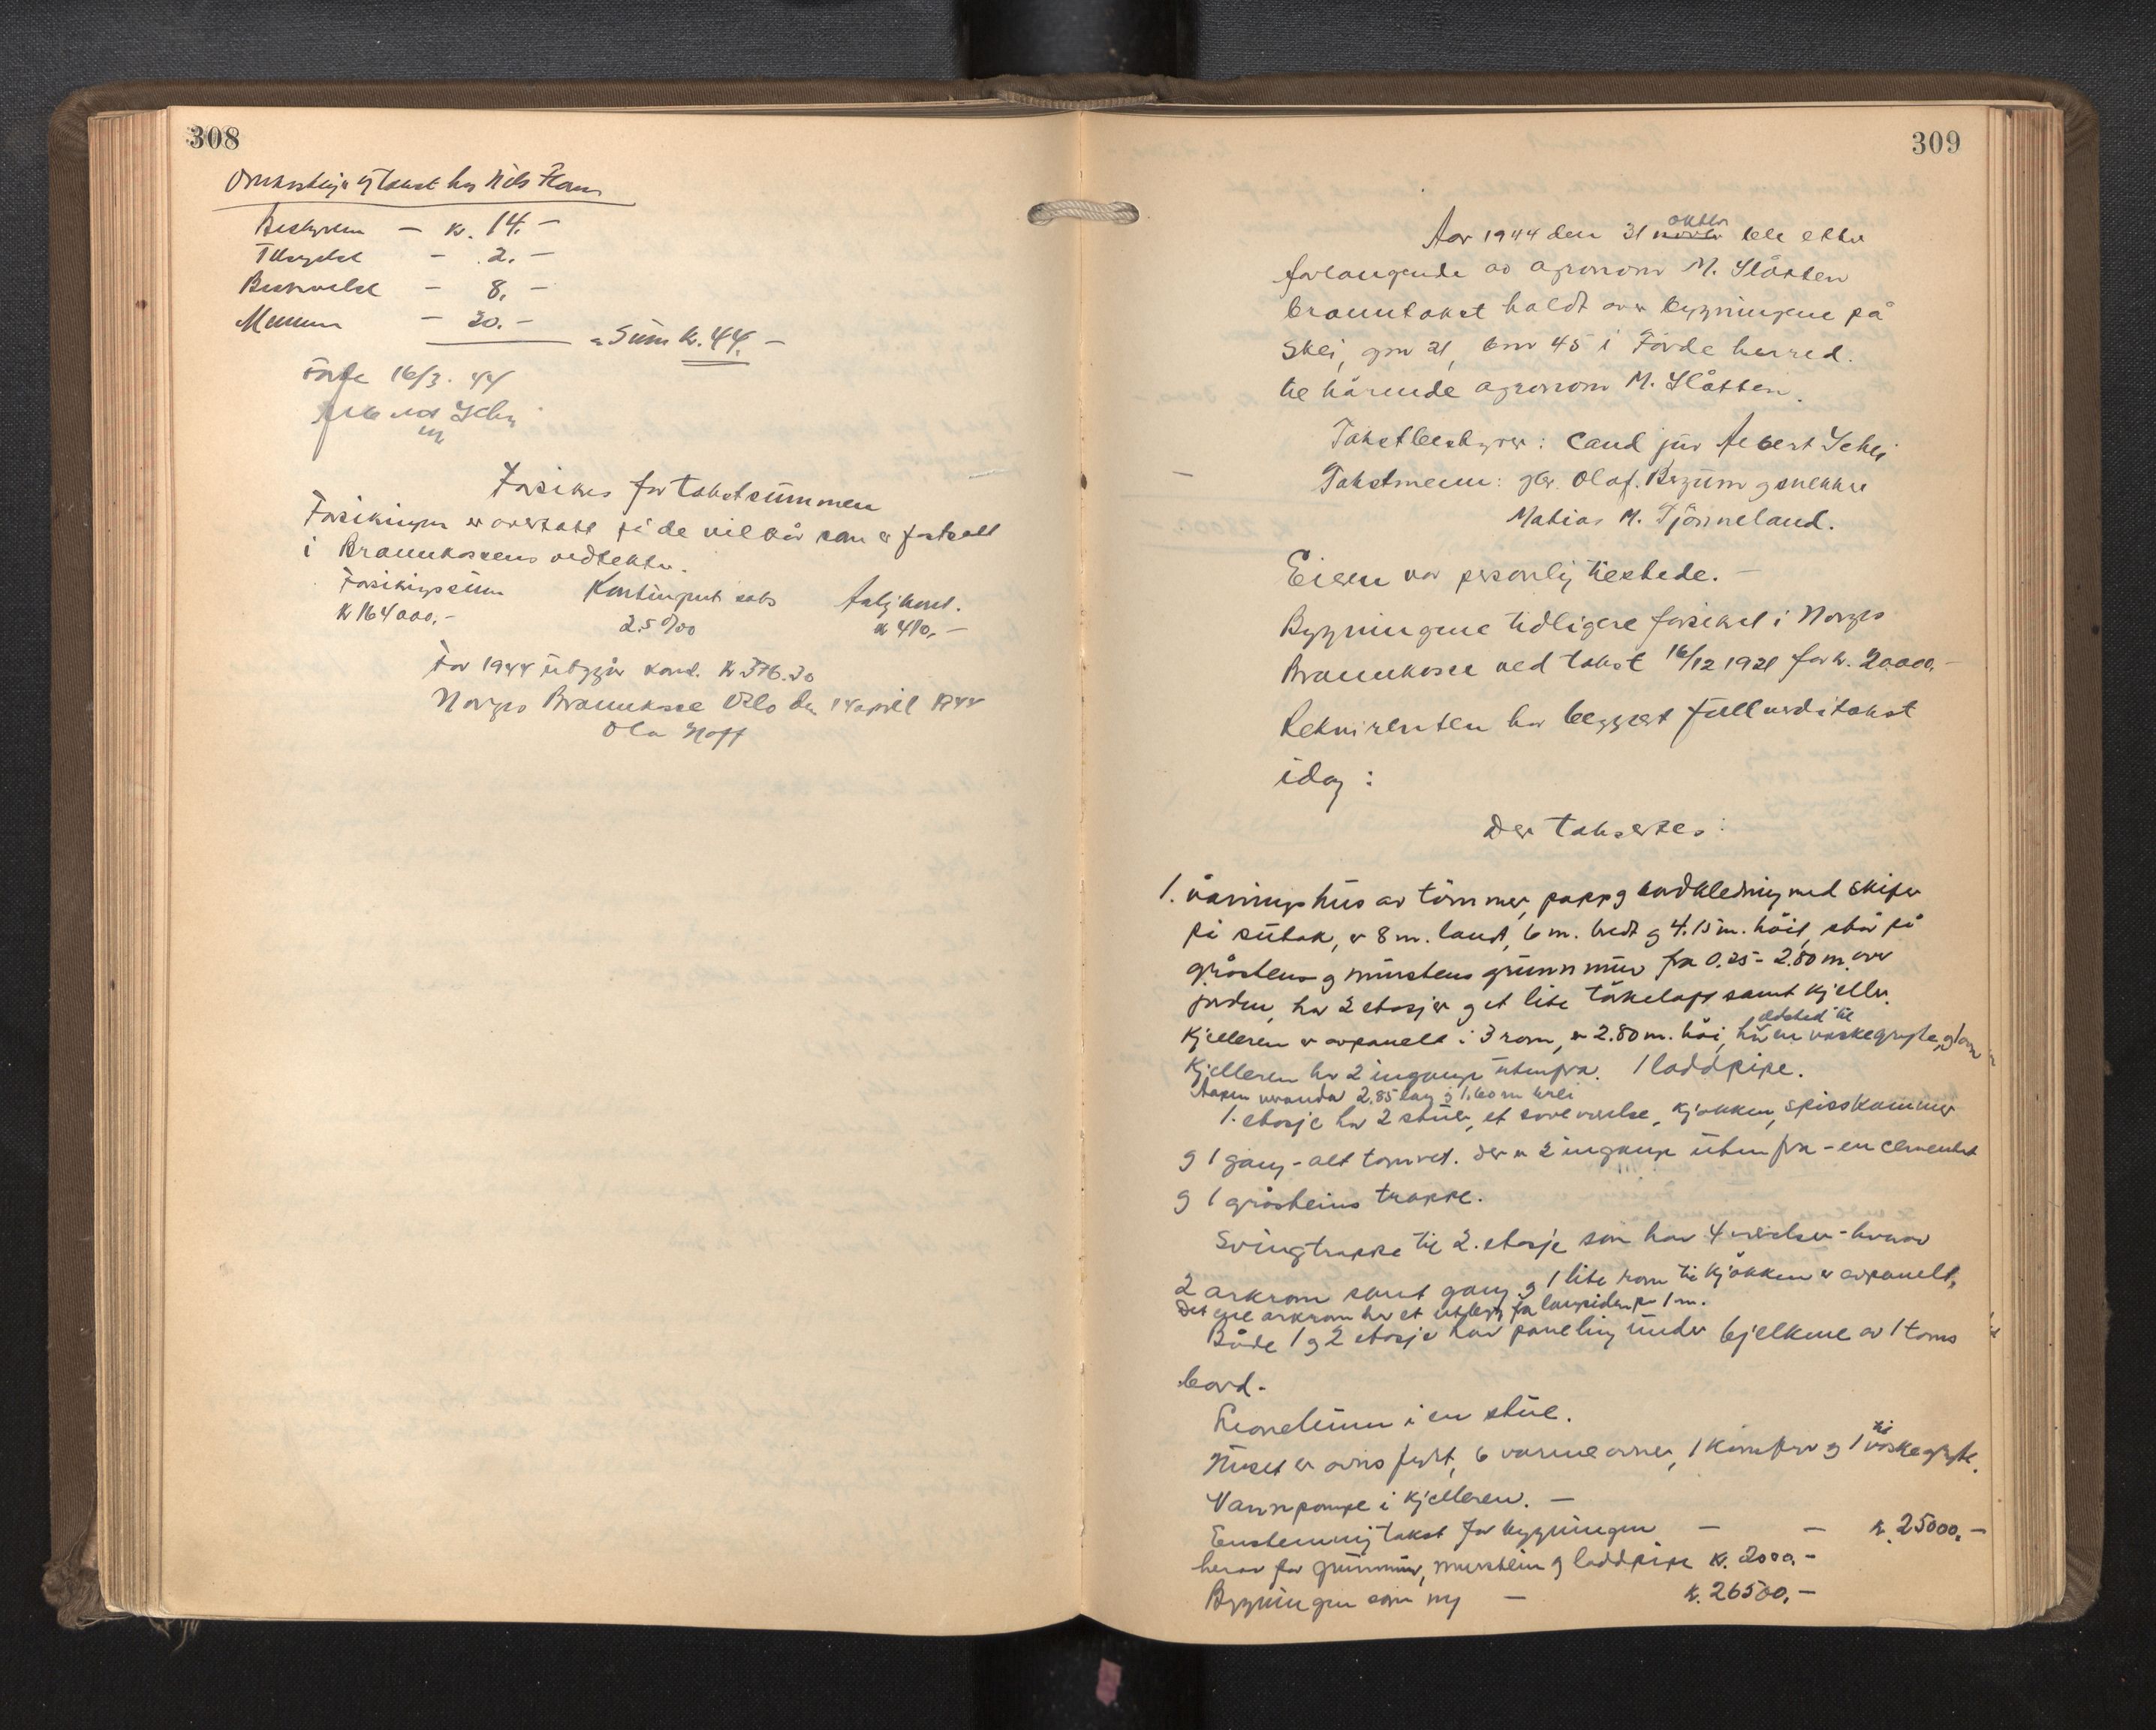 308
Omkostninger takst hos Nils Hans
Bestyreren - kr. 14.-
Tilsynelse - 2.-
Beskrivelse - 8.-
Mennene - 20.-
= Sum kr. 44.-
Førde 16/3. 44
Schei
Forsikres for takstsummen
Forsikringen er overtatt på de vilkår som er fastsatt
i Brannkassens vedtekter.
Forsikringssum Kontingent sats Årlig kont.
kr 164000.- 2.5 ‰ kr 410.-
For 1944 utgjør kont. kr 376.30
Norges Brannkasse Oslo den 14 april 1944
Ola Hoff
309
Aar 1944 den 31 oktbr ble etter
forlangende av agronom M. Slåtten
branntakst holdt over bygningene på
Skei, gnr 21, bnr 45 i Förde herred.
tilhörende agronom M. Slåtten.
Takstbestyrer: Cand jur Albert Schei
Takstmenn: gbr. Olaf. Bergum g snekker
Matias M. Tjönneland.
Eieren var personlig tilstede. -
Bygningene tidligere forsikret i Norges
Brannkasse ved takst 16/12 1921 for kr. 20.000.-
Rekvirenten har begjært fullverditakst
idag:
Der takseres:
1. våningshus av tömmer, papp g bordkledning med skifer
på sutak, er 8 m. langt, 6 m. bredt g 4.15 m. höit, står på
gråstens g murstens grunnmur fra 0.25 - 2.80 m. over
jorden, har 2 etasjer g et lite tåkeloft samt kjeller.
Kjelleren er avpanelt i 3 rom, er 2.80 m. höi, har ildsted til en vaskegryte, g
Kjelleren har 2 ingange utenfra. 1 loddpipe.
Åapen veranda 2.85 lang g 1.60 m brei
1. etasje har 2 stuer, et soveværelse, kjökken, spisskammer
g 1 gang - alt tomret. Der er 2 ingange utenfra - en cementert
g 1 gråsteins trappe.
Svingtrappe til 2. etasje som har 4 værelser - hvorav
2 arkrom samt gang g 1 lite rom til kjökken er avpanelt,
Det ene arkrom har et utbygg fra langsiden på 1 m.
Både 1 g 2 etasje har paneling under bjelkene av 1 toms
bord.
Linoleum i en stue.
Huset er ovnsfyrt, 6 varmeovner, 1 komfyr g 1 til vaskegryte.
Vannpumpe i kjelleren. -
Enstemmig takst for bygningen - - kr. 25000.-
herav for grunnmur, murstein g loddpipe kr. 2000.-
Bygningen som ny - kr. 26500.-